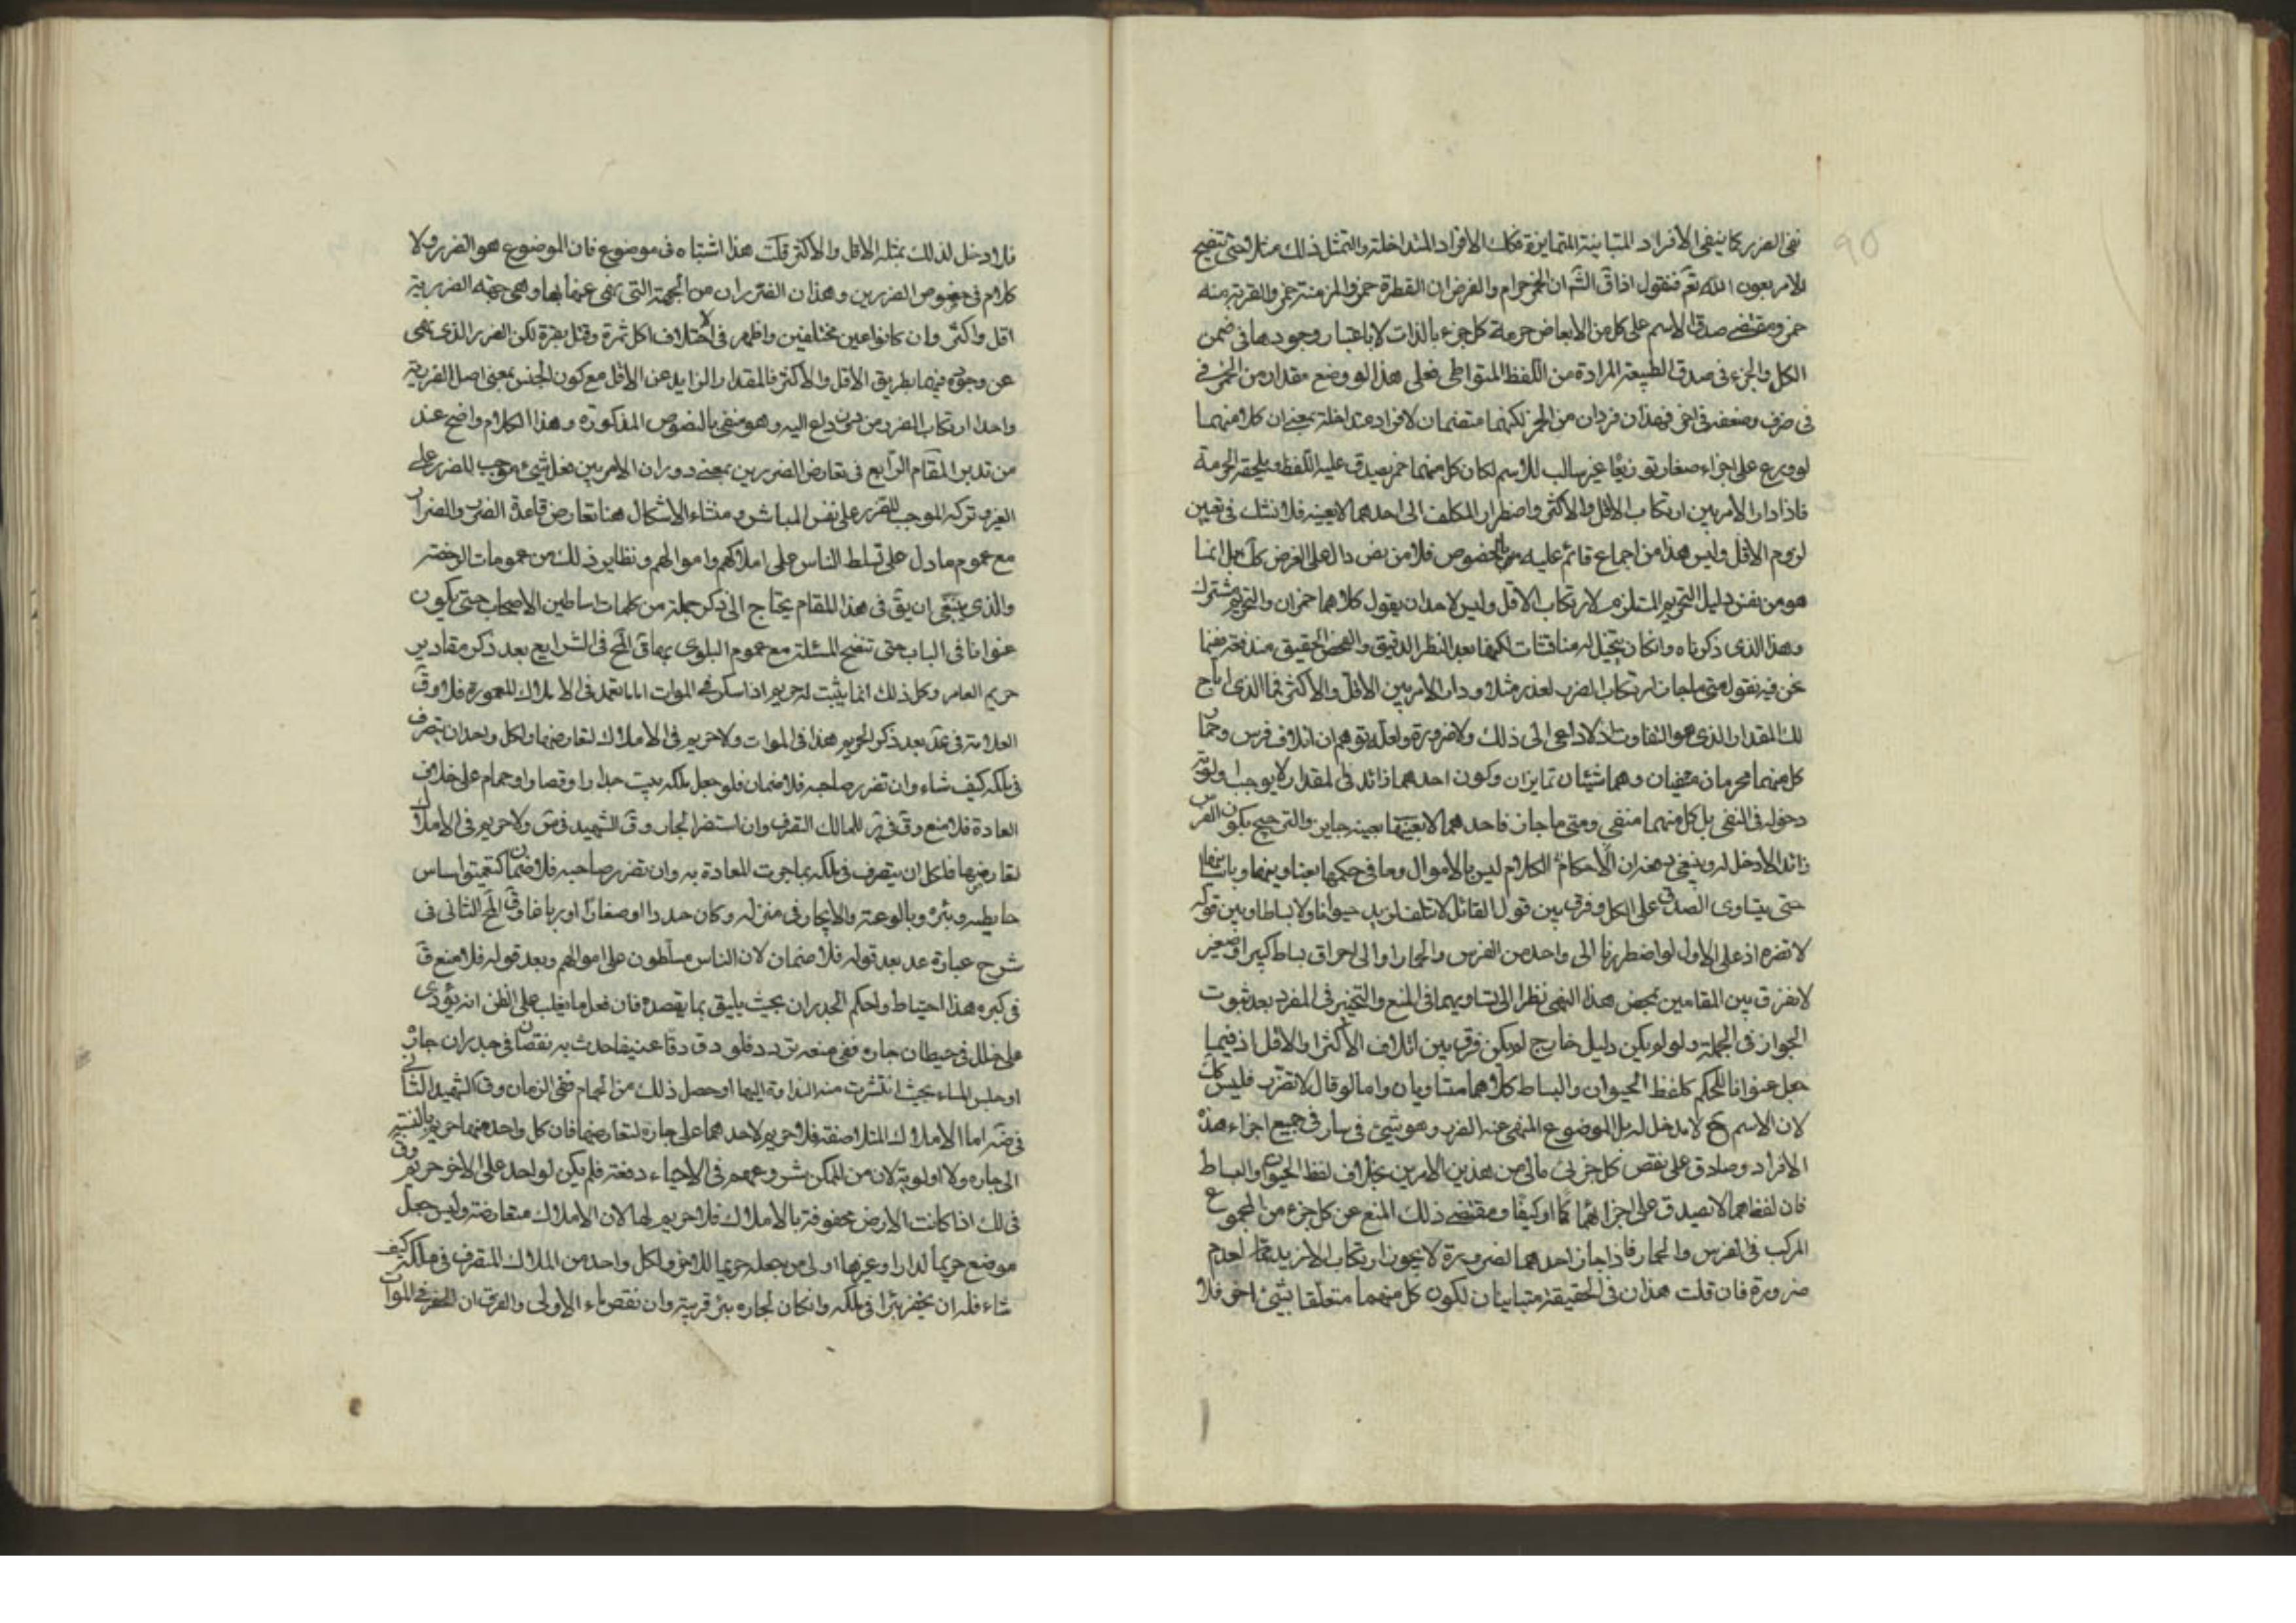 نفى الضرر كما ينفى الأفراد المتباينة المتمايزة فكك الأفراد المتداخلة ولنمثل ذلك مثلا حتى تتضح
للامر بعون الله تعم فنقول اذا ق الش ان الخمر حرام والفرض ان القطرة خمر والمزمنة خمر والقربة منه
خمر ومقتضى صدق الاسم على كل من الابعاض حرمة كل جزء بالذات لا باعتبار وجودها في ضمن
الكل والجزء في صدق الطبيعة المرادة من اللفظ المتواطى فعلى هذا لو وضع مقدار من الخمر في
في ظرف وضعفه في اخر فهذان فردان من الخمر لكنهما متضمنان لافراد متداخلة بمعنى ان كلا منهما
لو وزع على اجزاء صغار توزيعا غير سالب للاسم لكان كل منهما خمر يصدق عليه اللفظ ويلحقه الحرمة
فاذا دار الامر بين ارتكاب الاقل والاكثر واضطرار المكلف الى احدهما لا بعينه فلا نشك في تعين
لزوم الاقل وليس هذا من اجماع قائم عليه بالخصوص فلا من نص دال على الفرض كك بل انما
هو من نفس دليل التحريم المستلزم لارتكاب الاقل وليس لاحد ان يقول كلاهما خمران والتحريم مشترك
وهذا الذى ذكرناه وان كان يتخيل له مناقشات لكنها بعد النظر الدقيق والفحص الحقيق مندفعة فيما
نحن فيه نقول متى ما جاز ارتكاب الضرر لعذر مثلا ودار الامر بين الاقل والاكثر فما الذى اباح
لك المقدار الذى هو التفاوت اذ لا داعى الى ذلك ولا ضرورة ولعله توهم ان اتلاف فرس وحمار
كل منهما محرمان منفيان وهما شيئان تمايزان وكون احدهما زائد في المقدار لا يوجب اولوية
دخوله في النفى بل كل منهما منفى ومتى ما جاز فاحدهما لا بعينه جايز والترجيح بكون الفرس
زائد الا دخل له ويتضح بهذا ان الأحكام الكلام ليس بالاموال وما في حكمها بعناوينها وباسمائها
حتى يتساوى الصدق على الكل وفرق بين قول القائل لا تتلف لزيد حيوانا ولا بساطا وبين قوله
لا تضره اذ على الاول لو اضطررنا الى واحد من الفرس والحمار او الى احراق بساط كبير او صغير
لا نفرق بين المقامين بمحض هذا النهى نظرا الى تساويهما في المنع والتخيير في المفرد بعد ثبوت
الجواز في الجملة ولو لم يكن دليل خارج لم يكن فرق بين اتلاف الأكثر والاقل اذ فيما
جعل عنوانا للحكم كلفظ الحيوان والبساط كلاهما متساويان واما لو قال لا تضر فليس كك
لان الاسم ح لا مدخل له بل الموضوع المنفى عنه الضرر وهو شئ في سار في جميع اجزاء هذه
الافراد وصادق على نقص كل جزئى مالى من هذين الامرين بخلاف لفظ الحيوان والبساط
فان لفظهما لا يصدق على اجزائهما كما او كيفا ومقتضى ذلك المنع عن كل جزء من المجموع
المركب في الفرس والحمار فاذا جاز احدهما لضرورة لا يجوز ارتكاب الازيد لعدم
ضرورة فان قلت هذان في الحقيقة متباينان لكون كل منهما متعلقا بشئ اخر فلا
فلا دخل لذلك بمثله الاقل والاكثر قلت هذا اشتباه في موضوع فان الموضوع هو الضرر ولا
كلام في خصوص الضررين وهذان الضرران من الجهة التى نهى عنها وهى جهة الضررية
اقل واكثر وان كانوا عين مختلفين واظهر في اختلاف اكل ثمرة وقتل بقرة لكن الضرر الذى نهى
عن وجوده فيهما بطريق الاقل والاكثر فالمقدار الزايد عن الاقل مع كون الجنس بمعنى اصل الضررية
واحدا ارتكاب الضرر من دون داع اليه وهو منفى بالنصوص المذكورة وهذا الكلام واضح عند
من تدبر المقام الرابع في تعارض الضررين بمعنى دوران الامر بين فعل شئ موجب للضرر على
الغير وتركه الموجب للضرر على نفس المباشر ومنشاء الاشكال هنا تعارض قاعدة الضرر والضرار
مع عموم ما دل على تسلط الناس على املاكهم واموالهم ونظاير ذلك من عمومات الرخصة
والذى ينبغى ان يق في هذا المقام يحتاج الى ذكر جملة من كلمات اساطين الاصحاب حتى يكون
عنوانا في الباب حتى تنقح المسئلة مع عموم البلوى بها ق المح في الشرايع بعد ذكر مقادير
حريم العامر وكل ذلك انما يثبت له حريم اذا اسكر في الموات اما ما تعمد في الاملاك المعمورة فلا وق
العلامة في عد بعد ذكر الحريم هذا في الموات ولا حريم في الاملاك لتعارضها ولكل واحد ان يتصرف
في ملكه كيف شاء وان تضرر صاحبه فلا ضمان فلو جعل ملكه بيت حداد او قصار او حمام على خلاف
العادة فلا منع وق في ير للمالك التصرف وان استضر الجار وق الشهيد في س ولا حريم في الاملاك
لتعارضها فلكل ان يتصرف في ملكه بما جرت العادة به وان تضرر صاحبه فلا ضمان كتعميق اساس
حايطه وبئره وبالوعته والايجار في منزله وكان حدادا او صفارا او دباغا وق المح الثانى في
شرح عبارة عد بعد قوله فلا ضمان لان الناس مسلطون على اموالهم وبعد قوله فلا منع ق
في كبره هذا احتياط واحكم الجدران بحيث يليق بما يقصده فان فعل ما يغلب على الظن انه يؤدى
على خلل في حيطان جاره ففى منعه تردد فلو دق دقا عنيفا حدث به نقصان في جدران جاره
او حبس الماء بحيث انتشرت منه النداوة اليها او حصل ذلك من الحمام ففى الزمان وق الشهيد الثانى
في ضه اما الاملاك المتلاصقة فلا حريم لاحدهما على جاره لتعارضها فان كل واحد منهما حريم بالنسبة
الى جاره ولا اولوية لان من الممكن شروعهم في الاحياء دفعة فلم يكن لواحد على الاخر حريم وق
في لك اذا كانت الارض محفوفة بالاملاك فلا حريم لها لان الاملاك متعارضة وليس جعل
موضع حريما لدار او غيرها اولى من جعله حريما للاخر ولكل واحد من الملاك التصرف في ملكه كيف
شاء فله ان يحفر بئرا في ملكه وان كان لجاره بئر قريبة وان نقص ماء الاولى والفرق ان الحفر في الموات